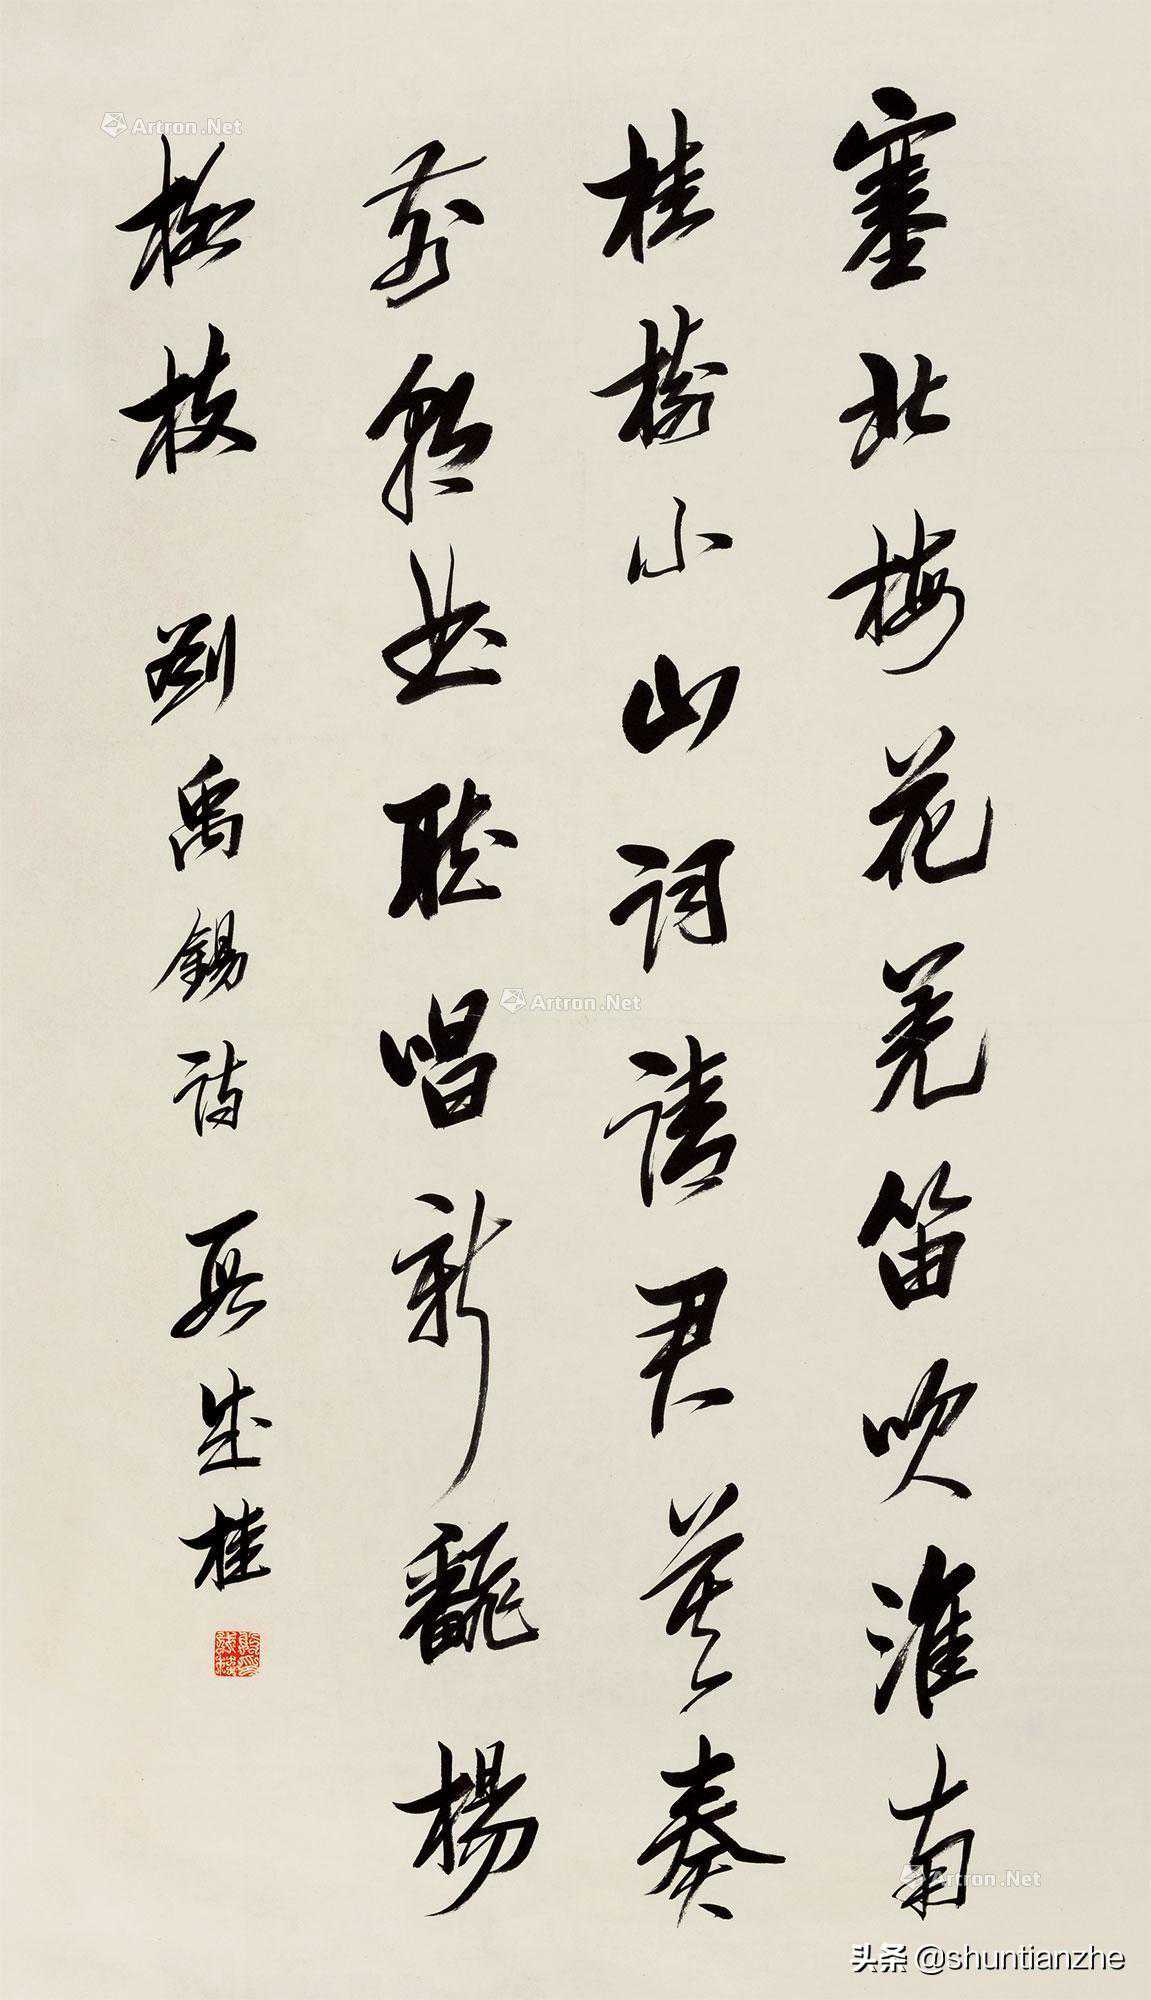 塞北梅花羌笛吹淮南
桂樹小山詞請君莫奏
前朝曲聽唱新飜楊
柳枝 劉禹錫詩 段成桂
Artron.Net
Artron.Net
Artron.Net
头条 @shuntianzhe